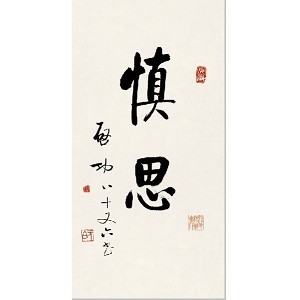 慎思
启功八十又六书